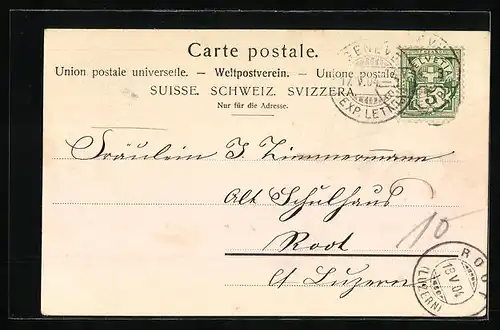 Carte postale.
Union postale universelle. — Weltpostverein. — Unione postale
SUISSE. SCHWEIZ. SVIZZERA.
Nur für die Adresse.
GENÈVE
17.V.04
EXP. LETTR.
HELVETIA
5
Fräulein J. Zimmermann
Alt Schulhaus
Root
Ct Luzern
10
ROOT
18 V 04
(LUZERN)